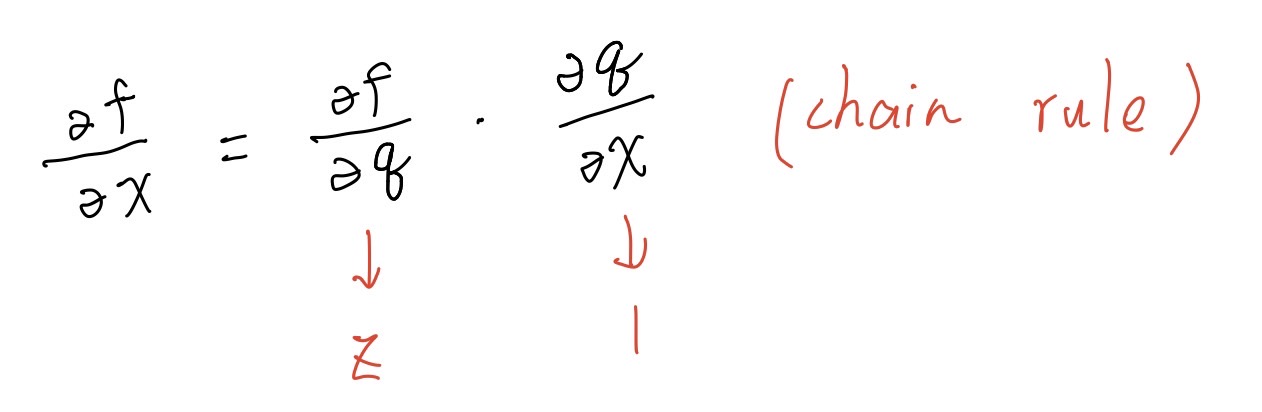 ∂f/∂x = ∂f/∂q · ∂q/∂x (chain rule)
↓ ↓
z 1